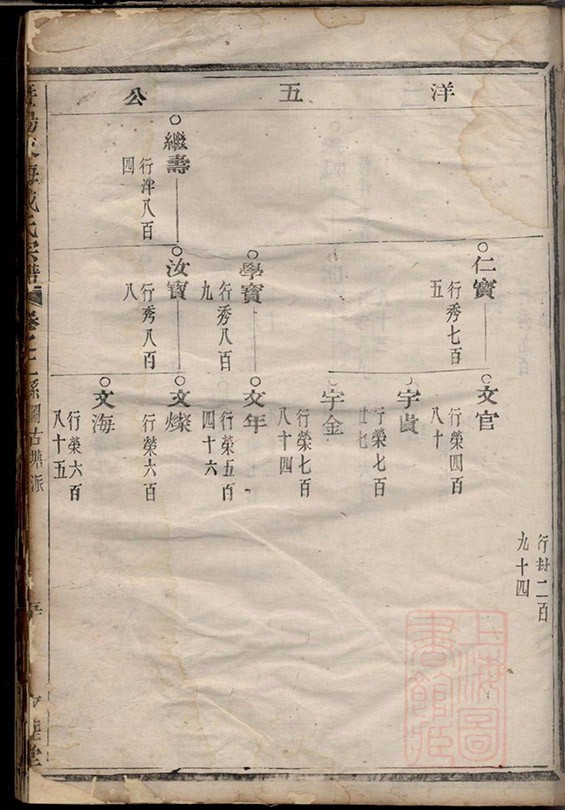 洋五公
行封二百
九十四
仁寶
行秀七百
五
文官
行榮四百
八十
宇貞
行榮七百
廿七
宇金
行榮七百
八十四
學寶
行秀八百
九
文年
行榮五百
四十六
繼壽
行津八百
四
汝寶
行秀八百
八
文燦
行榮六百
文海
行榮六百
八十五
氏宗譜
系圖古
派
堂
上海圖
書館藏